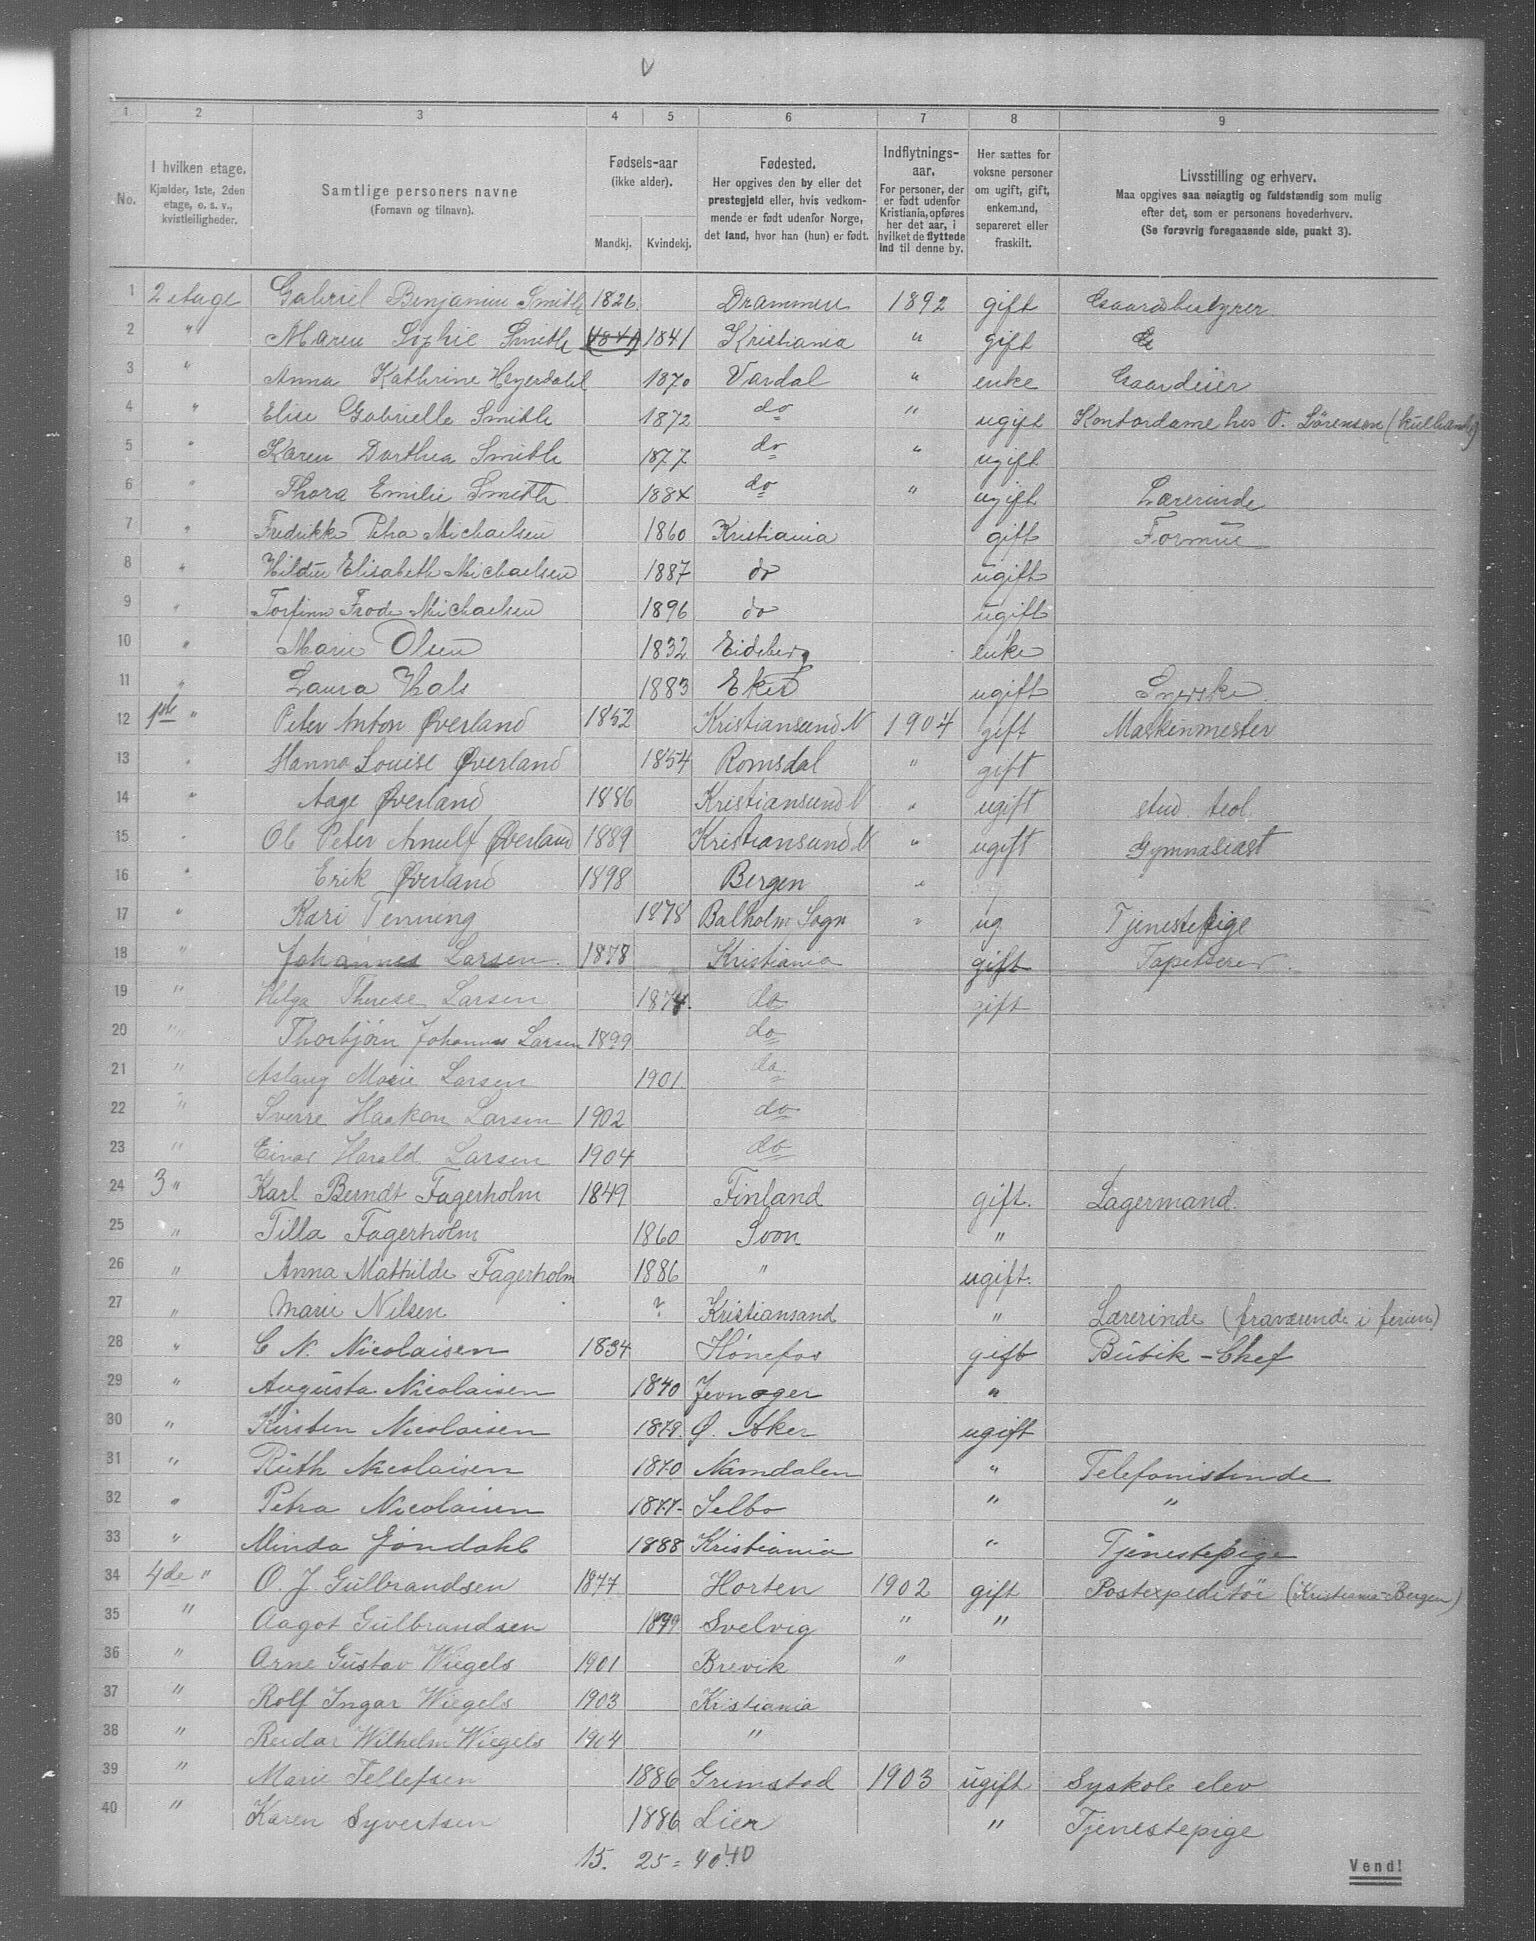 V
1 2 3 4 5 6 7 8 9
No.
I hvilken etage.
Kjælder, 1ste, 2den
etage, o. s. v.,
kvistleiligheder.
Samtlige personers navne
(Fornavn og tilnavn).
Fødsels-aar
(ikke alder).
Mandkj. Kvindekj.
Fødested.
Her opgives den by eller det
prestegjeld eller, hvis vedkom-
mende er født udenfor Norge,
det land, hvor han (hun) er født.
Indflytnings-
aar.
For personer, der
er født udenfor
Kristiania, opføres
her det aar, i
hvilket de flyttede
ind til denne by.
Her sættes for
voksne personer
om ugift, gift,
enkemand,
separeret eller
fraskilt.
Livsstilling og erhverv.
Maa opgives saa nøiagtig og fuldstændig som mulig
efter det, som er personens hovederhverv.
(Se forøvrig foregaaende side, punkt 3).
1 2 etage Gabriel Benjamin Smith 1826. Drammen 1892 gift Gaardsbestyrer
2 " Maren Sophie Smith (1841) 1841 Kristiania " gift
3 " Anna Kathrine Heyerdahl 1870 Vardal " enke Gaardeier
4 " Elise Gabrielle Smith 1872 do " ugift Kontordame hos O. Sørensen (kulhandl)
5 " Karen Dorthea Smith 1877 do " ugift
6 " Thora Emilie Smith 1884 do " ugift Lærerinde
7 " Fredrikke Petra Michaelsen 1860 Kristiania gift Formue
8 " Hildur Elisabeth Michaelsen 1887 do ugift
9 " Torfinn Frode Michaelsen 1896 do ugift
10 " Marie Olsen 1832 Eidsberg enke
11 " Laura Hals 1883 Eker ugift Syerske
12 1ste " Peter Anton Øverland 1852 Kristiansund N 1904 gift Maskinmester
13 " Hanna Louise Øverland 1854 Romsdal " gift
14 " Aage Øverland 1886 Kristiansund N " ugift stud. teol.
15 " Ole Peter Arnulf Øverland 1889 Kristiansund N " ugift Gymnasiast
16 " Erik Øverland 1898 Bergen "
17 " Kari Tenning 1878 Balholm Sogn " ug Tjenestepige
18 " Johannes Larsen 1878 Kristiania gift Tapetserer.
19 " Helga Therese Larsen 1874. do gift
20 " Thorbjørn Johannes Larsen 1899 do
21 " Aslaug Marie Larsen 1901 do
22 " Sverre Haakon Larsen 1902 do
23 " Einar Harald Larsen 1904 do
24 3 " Karl Berndt Fagerholm 1849 Finland gift. Lagermand.
25 " Tilla Fagerholm 1860 Soon "
26 " Anna Mathilde Fagerholm 1886 " ugift.
27 " Marie Nilsen ? Kristiansand " Lærerinde (fraværende i ferien)
28 " C N. Nicolaisen 1834 Hønefos gift Butik-Chef
29 " Augusta Nicolaisen 1840 Jevnager "
30 " Kirsten Nicolaisen 1879. Ø. Aker ugift
31 " Ruth Nicolaisen 1870 Namdalen " Telefonistinde
32 " Petra Nicolaisen 1877- Selbo " "
33 " Minda Gjøndahl 1888 Kristiania " Tjenestepige
34 4de " O. J. Gulbrandsen 1877 Horten 1902 gift Postexpeditør (Kristiania-Bergen)
35 " Aagot Gulbrandsen 1879 Svelvig " "
36 " Arne Gustav Wiegels 1901 Brevik "
37 " Rolf Ingar Wiegels 1903 Kristiania
38 " Reidar Wilhelm Wiegels 1904 "
39 " Marie Tellefsen 1886 Grimstad 1903 ugift Syskole elev
40 " Karen Syvertsen 1886 Lier " Tjenestepige
15. 25 = 40. 40
Vend!